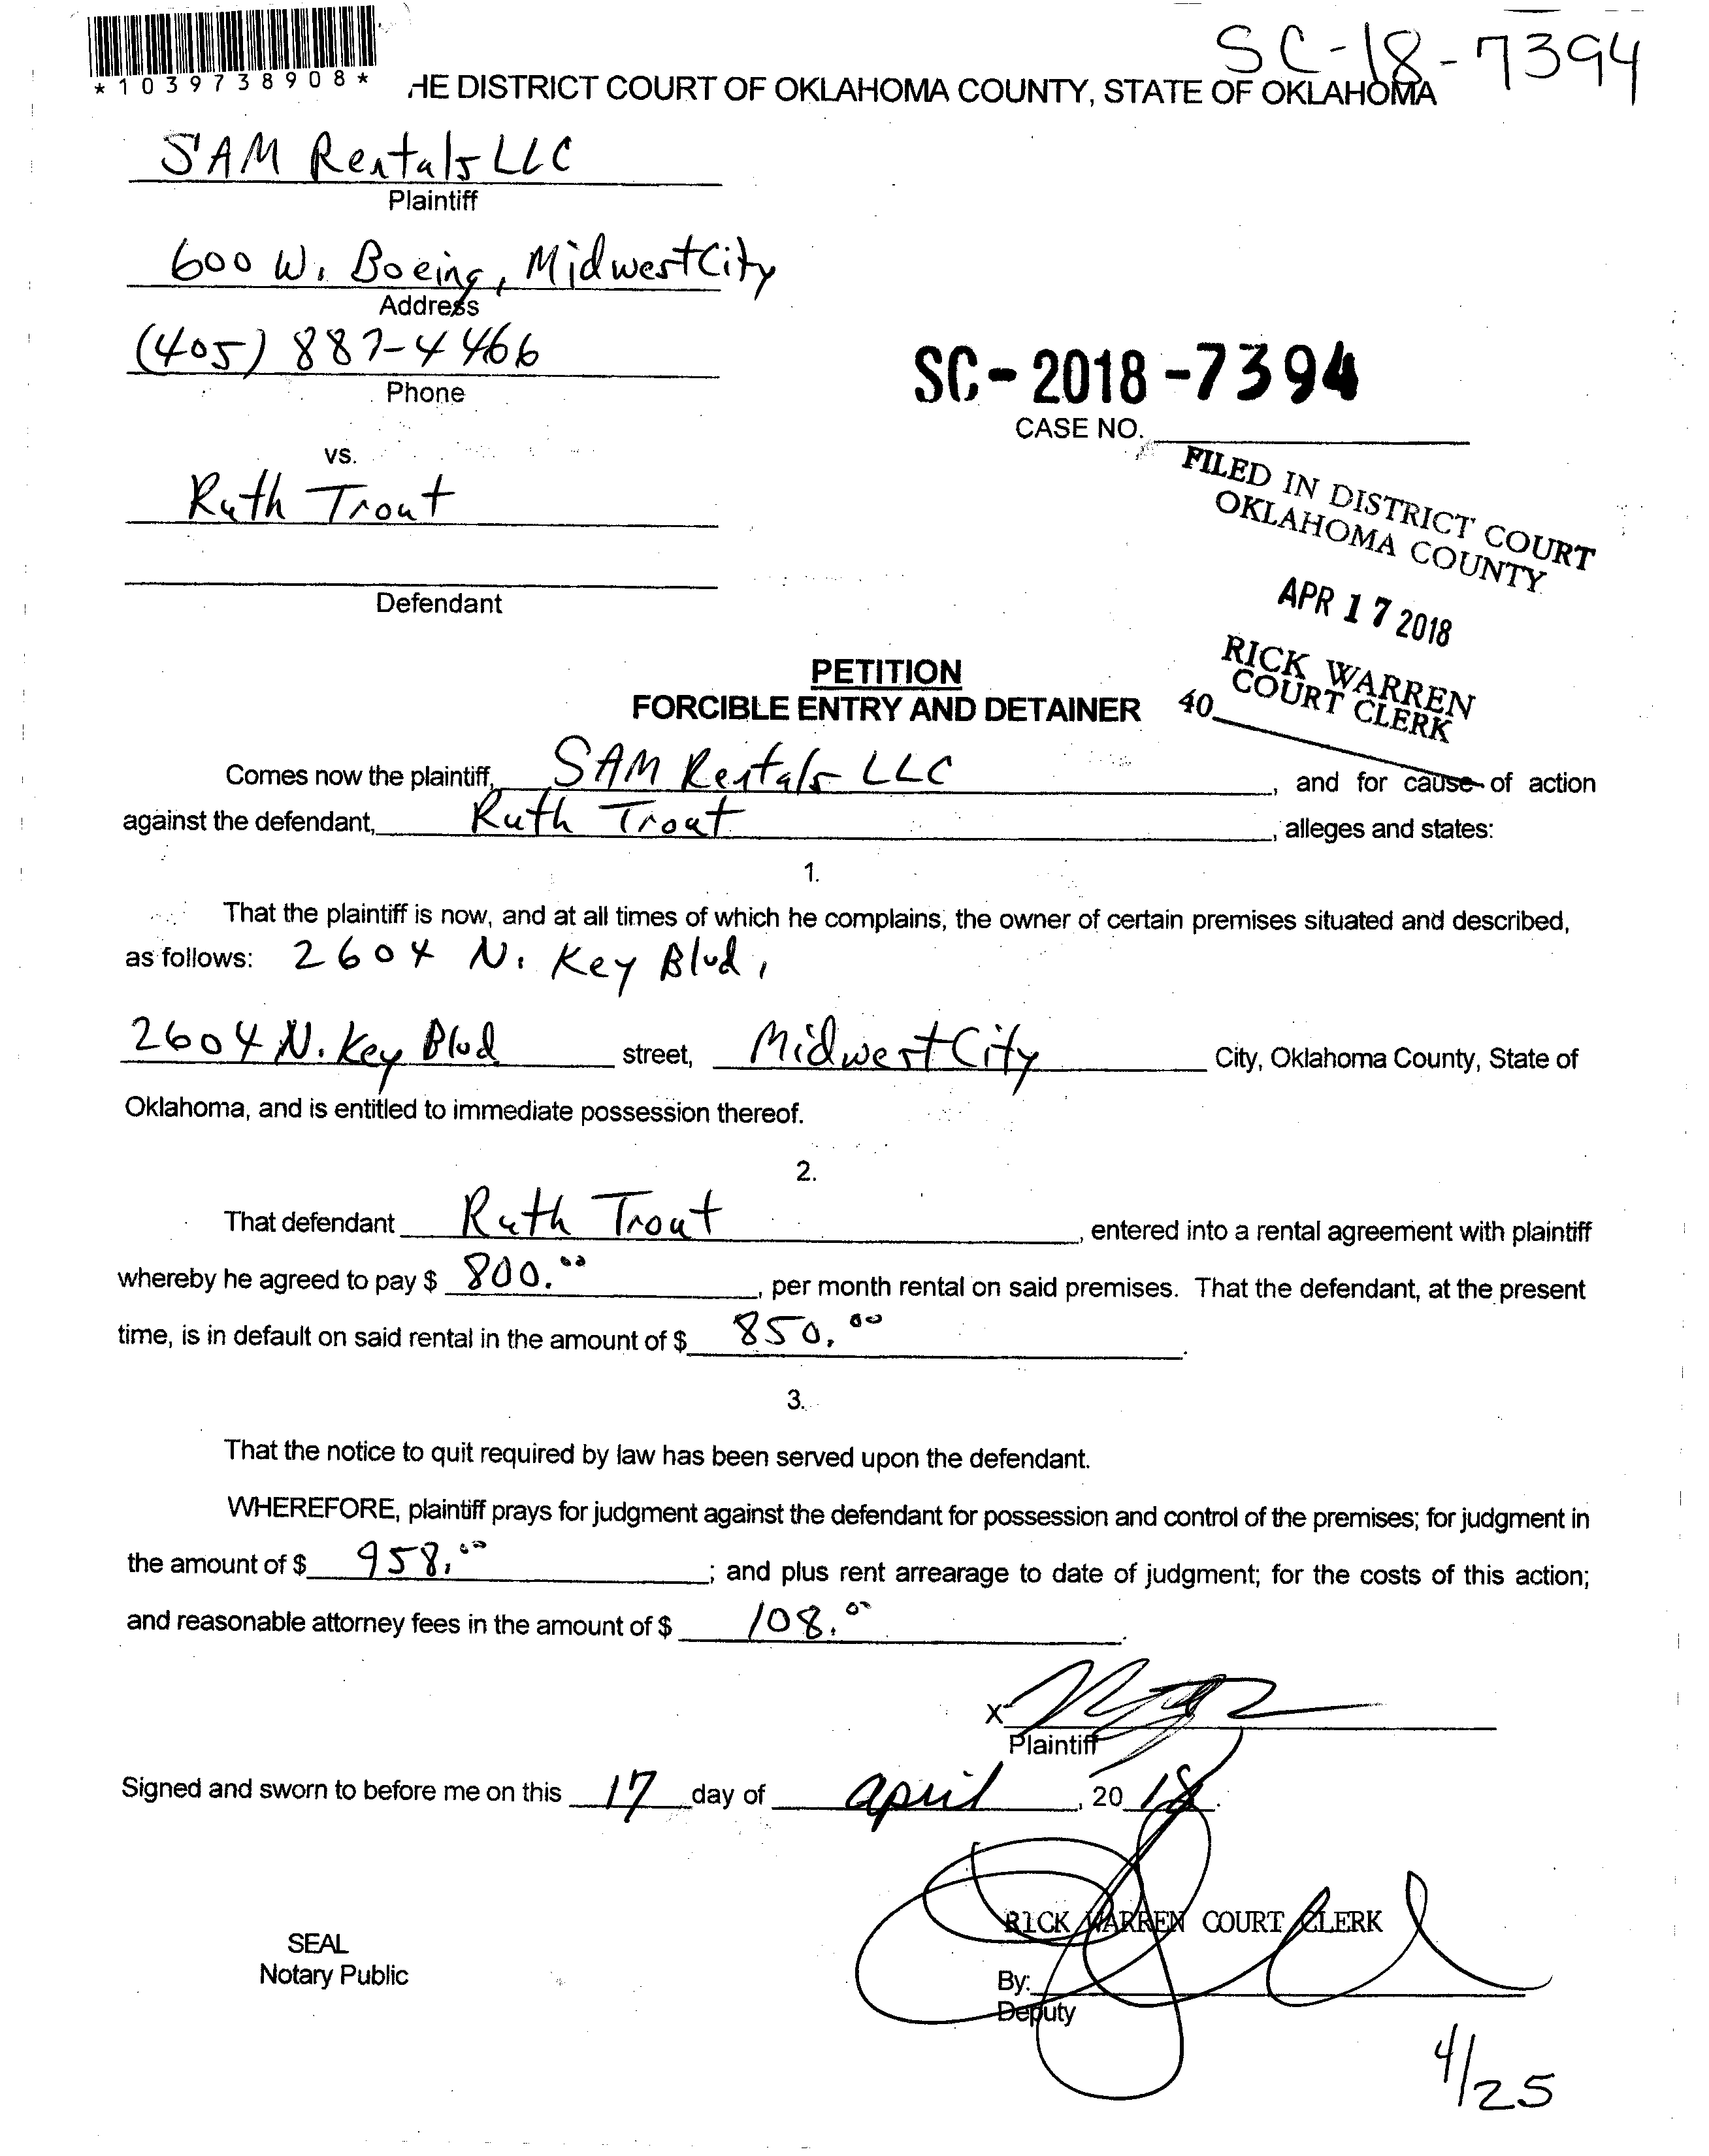 SC-18-7394
*1039738908*
HE DISTRICT COURT OF OKLAHOMA COUNTY, STATE OF OKLAHOMA
SAM Rentals LLC
Plaintiff
600 W. Boeing, Midwest City
Address
(405) 887-4466
Phone
SC-2018-7394
CASE NO.
vs.
FILED IN DISTRICT COURT
OKLAHOMA COUNTY
Ruth Trout
Defendant
APR 17 2018
RICK WARREN
COURT CLERK
40
PETITION
FORCIBLE ENTRY AND DETAINER
Comes now the plaintiff, SAM Rentals LLC, and for cause of action
against the defendant, Ruth Trout, alleges and states:
1.
That the plaintiff is now, and at all times of which he complains, the owner of certain premises situated and described,
as follows: 2604 N. Key Blvd,
2604 N. Key Blvd street, Midwest City City, Oklahoma County, State of
Oklahoma, and is entitled to immediate possession thereof.
2.
That defendant Ruth Trout, entered into a rental agreement with plaintiff
whereby he agreed to pay $ 800.00, per month rental on said premises. That the defendant, at the present
time, is in default on said rental in the amount of $ 850.00.
3.
That the notice to quit required by law has been served upon the defendant.
WHEREFORE, plaintiff prays for judgment against the defendant for possession and control of the premises; for judgment in
the amount of $ 958.00; and plus rent arrearage to date of judgment; for the costs of this action;
and reasonable attorney fees in the amount of $ 108.00.
X
Plaintiff
Signed and sworn to before me on this 17 day of april, 20 18.
RICK WARREN COURT CLERK
SEAL
Notary Public
By:
Deputy
4/25